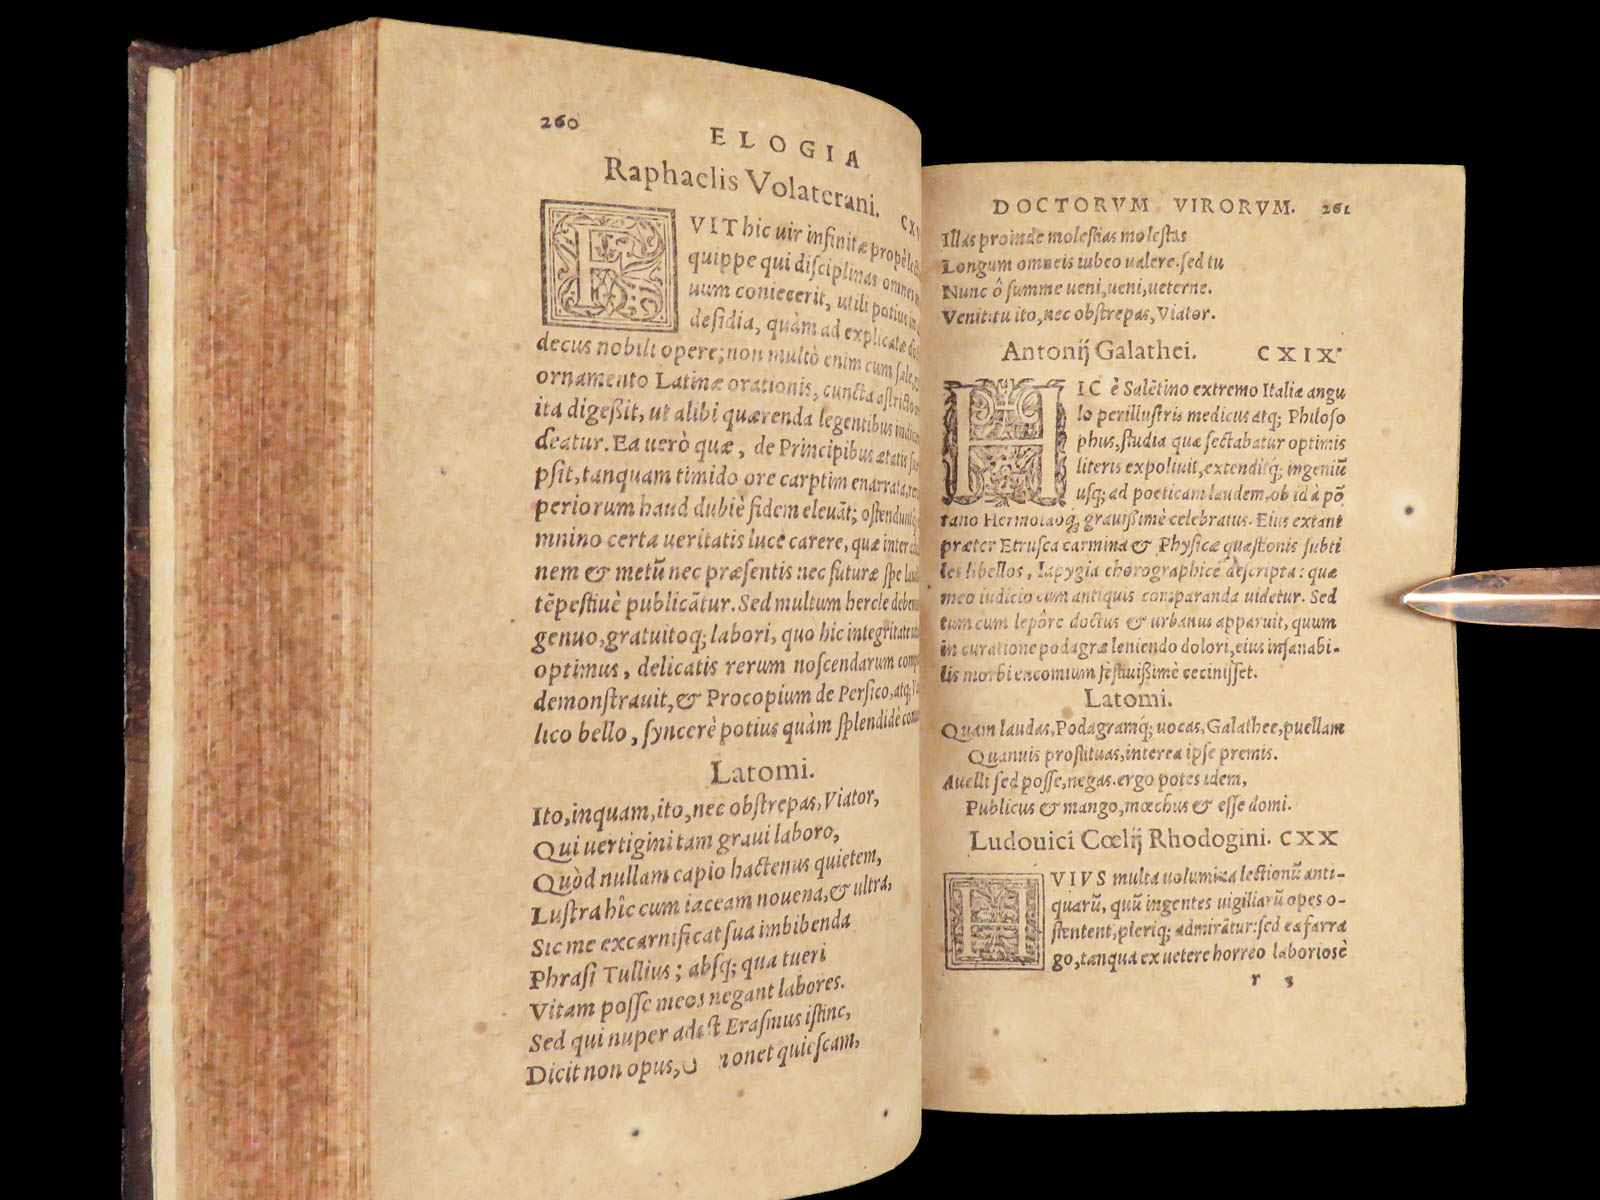 260
ELOGIA
Raphaelis Volaterani. CXV
VIT hic uir infinitæ propè
quippe qui disciplinas omnes
uum coniecerit, utili potius in
desidia, quàm ad explicatæ
decus nobili opere; non multò enim cum sale,
ornamento Latinæ orationis, cuncta
ita digeßit, ut alibi quærenda legentibus
deatur. Ea uerò quæ, de Principibus ætatis
psit, tanquam timido ore carptim enarrata,
periorum haud dubiè fidem eleuãt; ostendunt
mnino certa ueritatis luce carere, quæ inter
nem & metũ nec præsentis nec futuræ spe
tẽpestiuè publicãtur. Sed multum hercle
genuo, gratuitoq; labori, quo hic integritate
optimus, delicatis rerum noscendarum
demonstrauit, & Procopium de Persico, atq;
lico bello, syncerè potius quàm splendidè
Latomi.
Ito, inquam, ito, nec obstrepas, Viator,
Qui uertigini tam graui laboro,
Quòd nullam capio hactenus quietem,
Lustra hîc cum iaceam nouena, & ultra,
Sic me excarnificat sua imbibenda
Phrasi Tullius; absq; qua tueri
Vitam posse meos negant labores.
Sed qui nuper adest Erasmus istinc,
Dicit non opus, quiescam,
DOCTORVM VIRORVM. 261
Illas proinde molestias molestas
Longum omneis iubeo ualere. sed tu
Nunc ô summe ueni, ueni, ueterne.
Venit: tu ito, nec obstrepas, Viator.
Antonij Galathei. CXIX
IC è Salẽtino extremo Italiæ angu
lo perillustris medicus atq; Philoso
phus, studia quæ sectabatur optimis
literis expoliuit, extenditq; ingeniũ
usq; ad poeticam laudem, ob id à põ
tano Hermolaoq; grauißimè celebratus. Eius extant
præter Etrusca carmina & Physicæ quæstionis subti
les libellos, Iapygia chorographicè descripta: quæ
meo iudicio cum antiquis comparanda uidetur. Sed
tum cum lepôre doctus & urbanus apparuit, quum
in curatione podagræ leniendo dolori, eius insanabi-
lis morbi encomium festiuißimè cecinisset.
Latomi.
Quam laudas, Podagramq; uocas, Galathee, puellam
Quanuis prostituas, interea ipse premis.
Auelli sed posse, negas. ergo potes idem,
Publicus & mango, mœchus & esse domi.
Ludouici Cœlij Rhodogini. CXX
VIVS multa uolumina lectionũ anti-
quarũ, quũ ingentes uigiliarũ opes o-
stentent, pleriq; admirãtur: sed ea farra
go, tanqua ex uetere horreo laboriosè
r 3